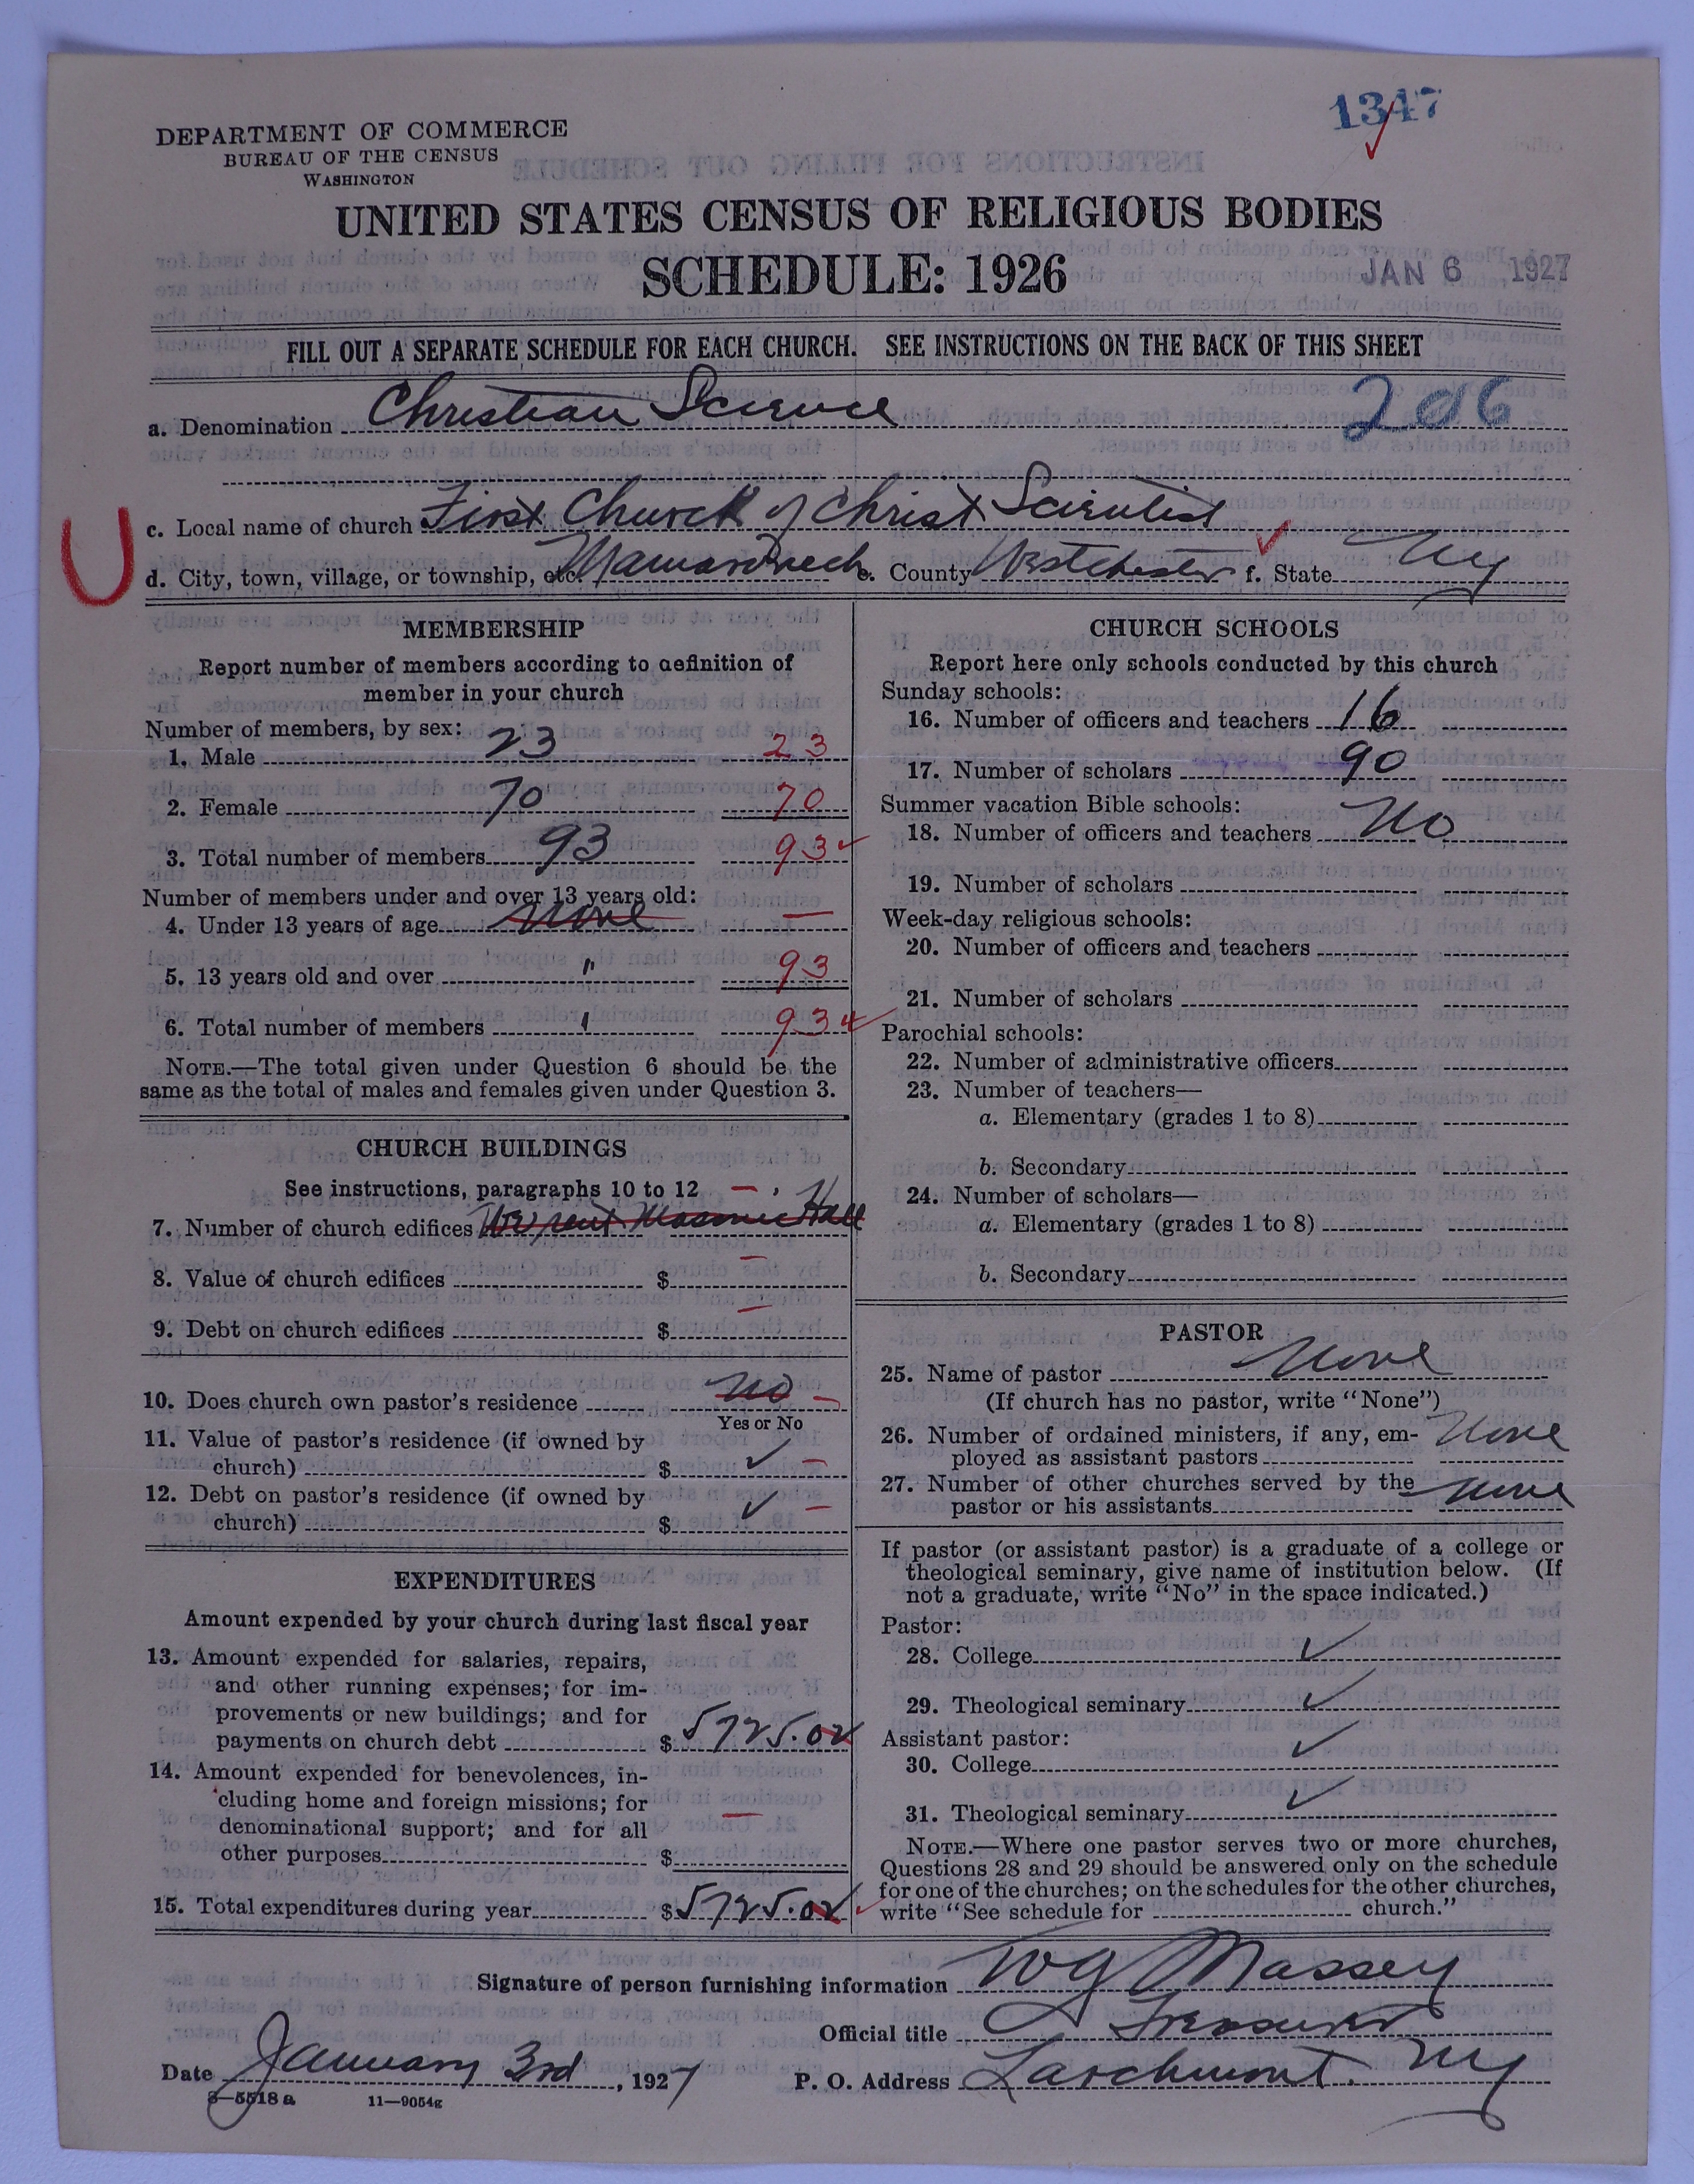 1347
DEPARTMENT OF COMMERCE
BUREAU OF THE CENSUS
WASHINGTON
UNITED STATES CENSUS OF RELIGIOUS BODIES
SCHEDULE: 1926
JAN 6 1927
FILL OUT A SEPARATE SCHEDULE FOR EACH CHURCH. SEE INSTRUCTIONS ON THE BACK OF THIS SHEET
a. Denomination Christian Science 206
c. Local name of church First Church of Christ Scientist
U
d. City, town, village, or township, etc. Mamaroneck e. County Westchester f. State NY
MEMBERSHIP
Report number of members according to definition of
member in your church
Number of members, by sex:
1. Male 23 23
2. Female 70 70
3. Total number of members 93 93
Number of members under and over 13 years old:
4. Under 13 years of age None —
5. 13 years old and over " 93
6. Total number of members " 93
NOTE.—The total given under Question 6 should be the
same as the total of males and females given under Question 3.
CHURCH BUILDINGS
See instructions, paragraphs 10 to 12 —
7. Number of church edifices We rent Masonic Hall
8. Value of church edifices $ —
9. Debt on church edifices $ —
10. Does church own pastor's residence No —
Yes or No
11. Value of pastor's residence (if owned by
church) $ ✓ —
12. Debt on pastor's residence (if owned by
church) $ ✓ —
EXPENDITURES
Amount expended by your church during last fiscal year
13. Amount expended for salaries, repairs,
and other running expenses; for im-
provements or new buildings; and for
payments on church debt $ 5725.02
14. Amount expended for benevolences, in-
cluding home and foreign missions; for
denominational support; and for all
other purposes $ —
15. Total expenditures during year $ 5725.02
CHURCH SCHOOLS
Report here only schools conducted by this church
Sunday schools:
16. Number of officers and teachers 16
17. Number of scholars 90
Summer vacation Bible schools:
18. Number of officers and teachers No
19. Number of scholars
Week-day religious schools:
20. Number of officers and teachers
21. Number of scholars
Parochial schools:
22. Number of administrative officers
23. Number of teachers—
a. Elementary (grades 1 to 8)
b. Secondary
24. Number of scholars—
a. Elementary (grades 1 to 8)
b. Secondary
PASTOR
25. Name of pastor None
(If church has no pastor, write "None")
26. Number of ordained ministers, if any, em-
ployed as assistant pastors None
27. Number of other churches served by the
pastor or his assistants None
If pastor (or assistant pastor) is a graduate of a college or
theological seminary, give name of institution below. (If
not a graduate, write "No" in the space indicated.)
Pastor:
28. College ✓
29. Theological seminary ✓
Assistant pastor:
30. College ✓
31. Theological seminary ✓
NOTE.—Where one pastor serves two or more churches,
Questions 28 and 29 should be answered only on the schedule
for one of the churches; on the schedules for the other churches,
write "See schedule for church."
Signature of person furnishing information W G Massey
Official title Treasurer
Date January 3rd, 1927 P. O. Address Larchmont. NY
8—5518 a 11—9054g